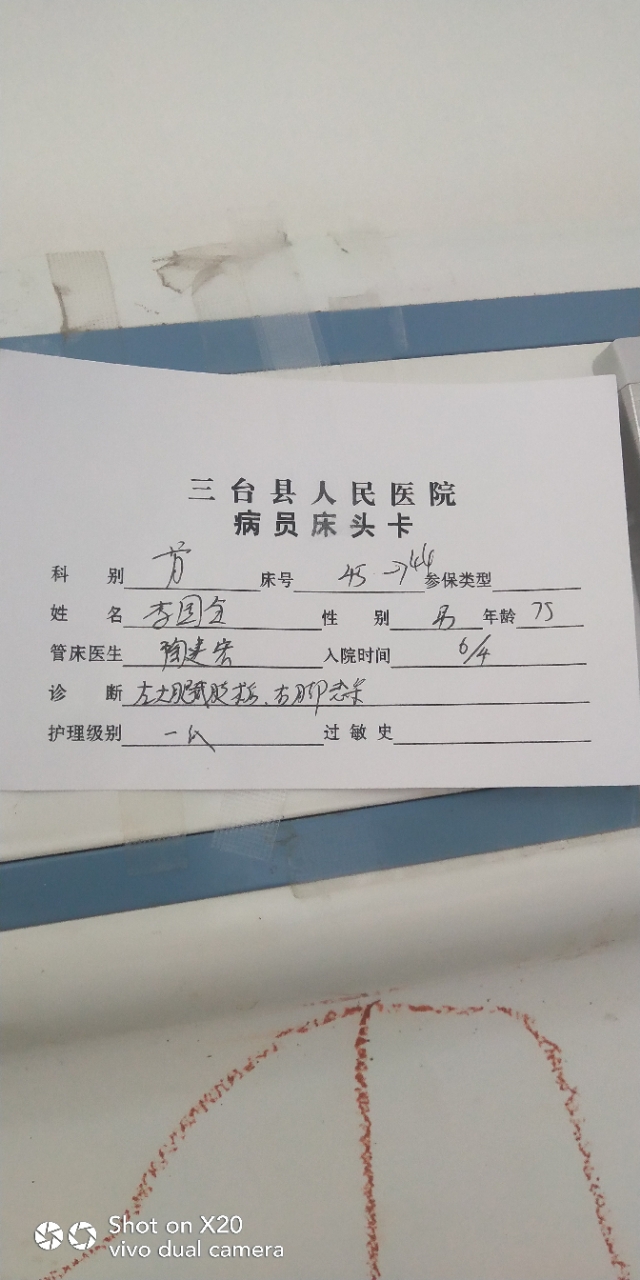 三台县人民医院
病员床头卡
科 别 床号 45 → 44 参保类型
姓 名 李国全 性 别 男 年龄 75
管床医生 陶建宏 入院时间 6/4
诊 断
护理级别 一级 过敏史
Shot on X20
vivo dual camera